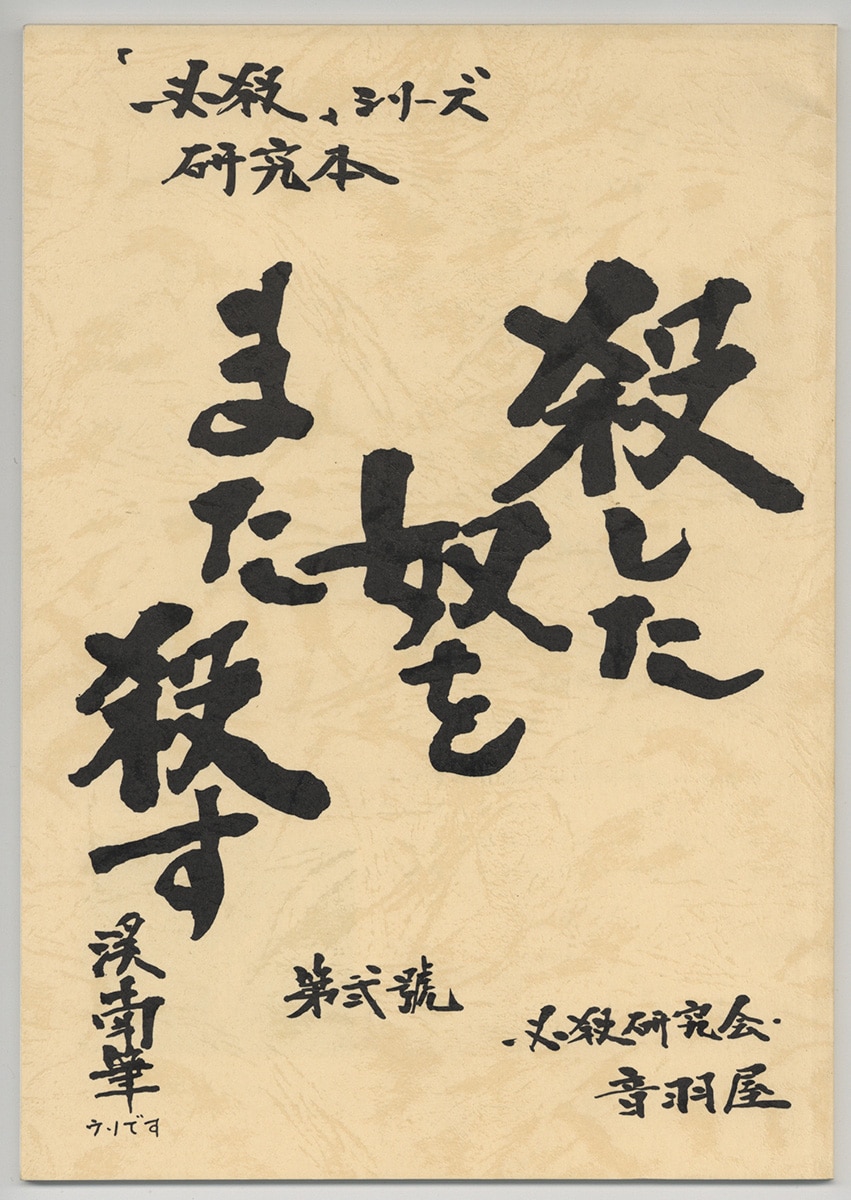 「必殺」シリーズ
研究本
殺した
奴を
また
殺す
渓南筆
ウソです
第弐號
必殺研究会
音羽屋